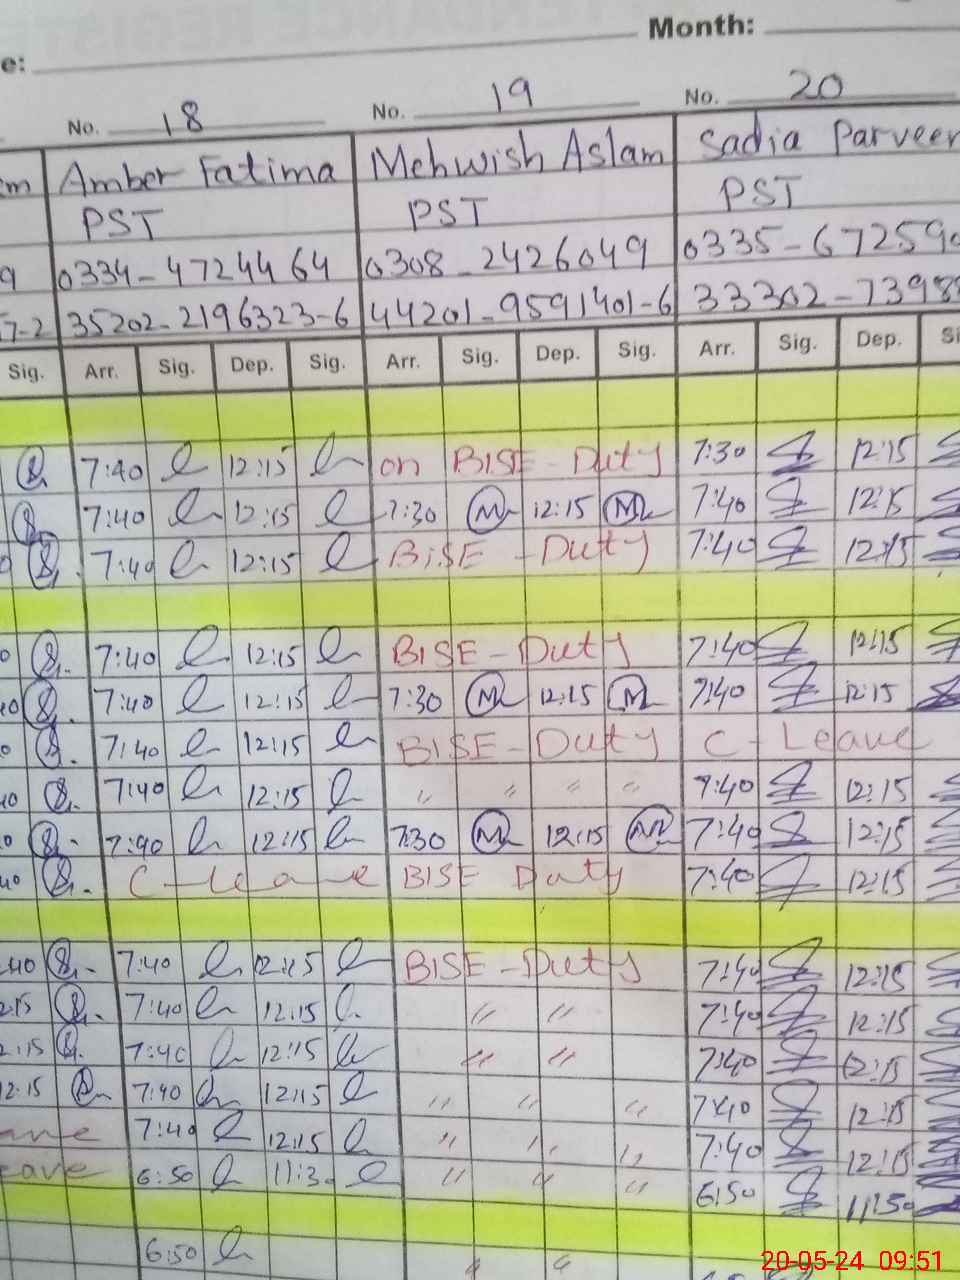 Month:
e:
No. 18 No. 19 No. 20
Amber Fatima Mehwish Aslam Sadia Parveen
PST PST PST
9 0334-4724464 0308-2426049 0335-67259
7-2 35202-2196323-6 44201-9591401-6 33302-7398
Sig. Arr. Sig. Dep. Sig. Arr. Sig. Dep. Sig. Arr. Sig. Dep. Si
7:40 12:15 on BISE-Duty 7:30 12:15
7:40 12:15 7:30 12:15 7:40 12:15
7:40 12:15 BISE-Duty 7:40 12:15
7:40 12:15 BISE-Duty 7:40 12:15
7:40 12:15 7:30 12:15 7:40 12:15
7:40 12:15 BISE-Duty C-Leave
7:40 12:15 " " " " 7:40 12:15
7:40 12:15 7:30 12:15 7:40 12:15
C-leave BISE Duty 7:40 12:15
:40 7:40 12:15 BISE-Duty 7:40 12:15
2:15 7:40 12:15 " " 7:40 12:15
2:15 7:40 12:15 " " 7:40 12:15
12:15 7:40 12:15 " " " 7:40 12:15
ave 7:40 12:15 " " " 7:40 12:15
eave 6:50 11:30 " " " 6:50 11:50
6:50 " "
20-05-24 09:51